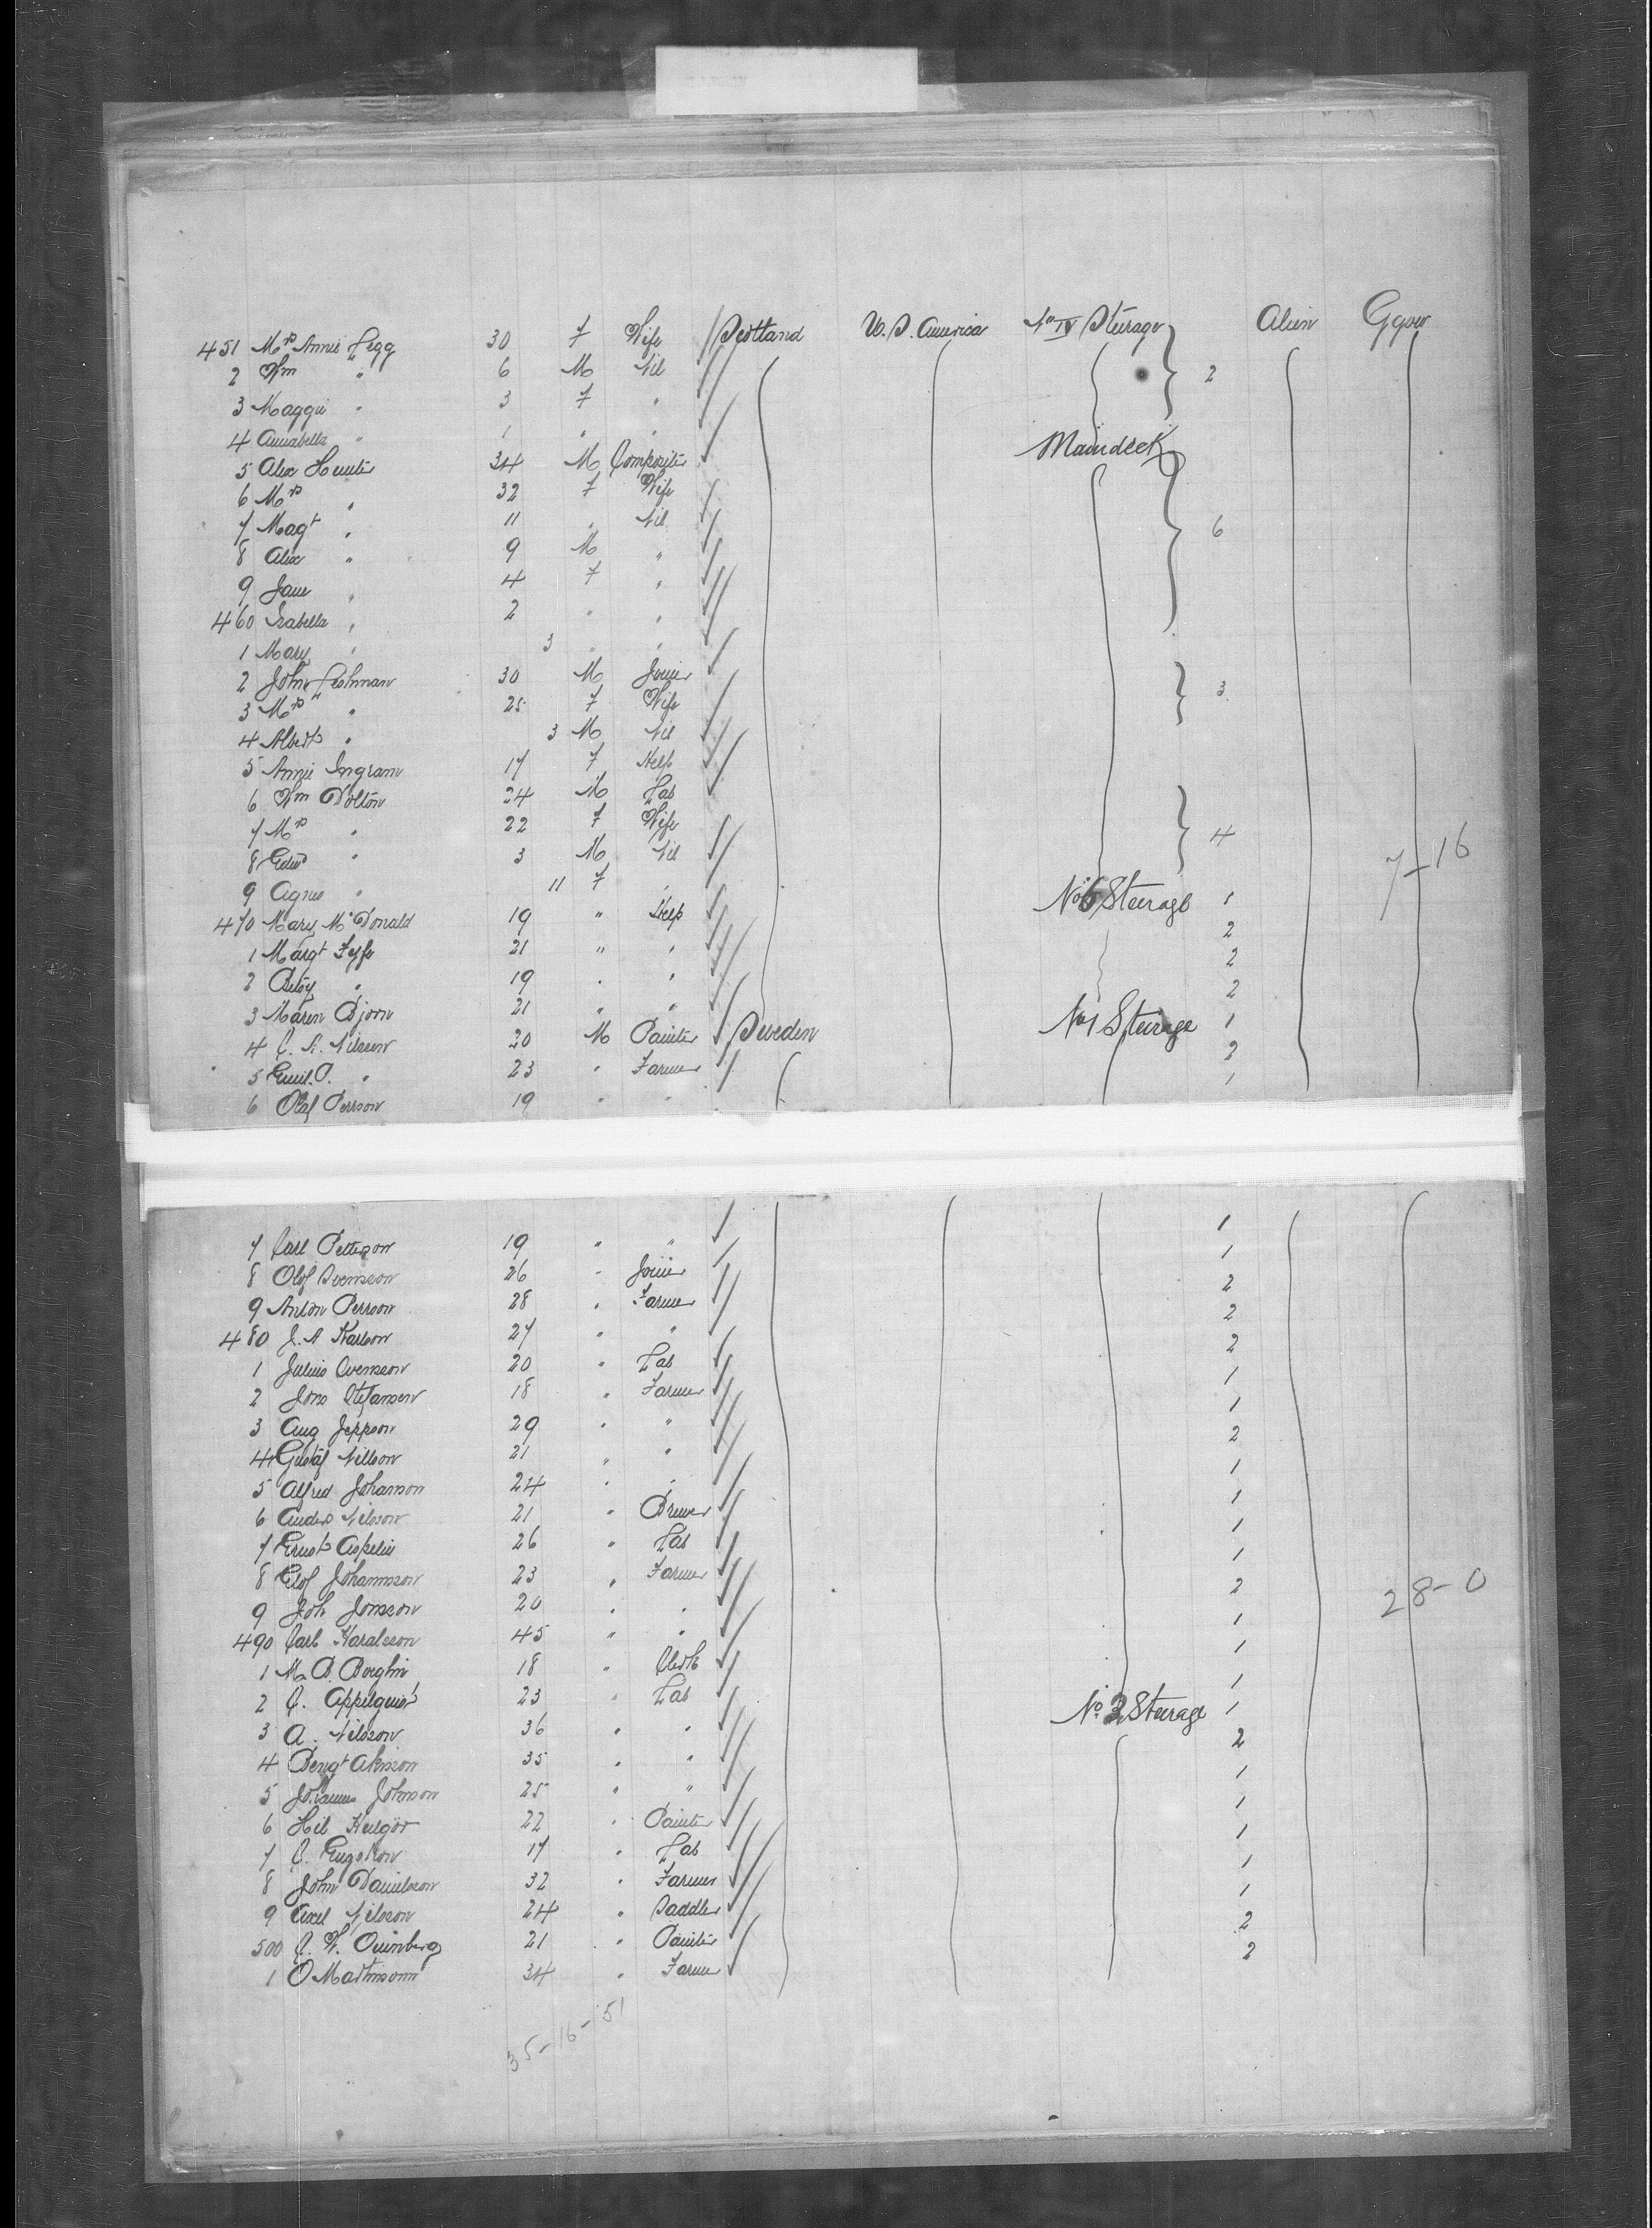 451 Mrs Annie Legg 30 F Wife Scotland U.S. America No IV Steerage Alien Ggow
2 Wm " 6 M Nil 2
3 Maggie " 3 F "
4 Annabella " 1 " "
5 Alex Hunter 34 M Compositer Maindeck
6 Mrs " 32 F Wife
7 Magt " 11 " Nil 6
8 Alex " 9 M "
9 Jane " 4 F "
460 Isabella " 2 " "
1 Mary " 3 " "
2 John Leshman 30 M Joiner 3
3 Mrs " " 25 F Wife
4 Albert " 3 M Nil
5 Annie Ingram 17 F Help
6 Wm Dolton 24 M Lab
7 Mrs " 22 F Wife 4
8 Edw " 3 M Nil 7-16
9 Agnes " 11 F "
470 Mary McDonald 19 " Help No 6 Steerage 1
1 Margt Fyfe 21 " " 2
2 Betsy " 19 " " 2
3 Maren Bjorn 21 " " 2
4 C. A. Nilsson 20 M Painter Sweden No 1 Steerage 1
5 Emil. P. " 23 " Farmer 2
6 Olaf Persson 19 " " 1
7 Carl Petterson 19 " " 1
8 Olof Svensson 26 " Joiner 1
9 Anton Persson 28 " Farmer 2
480 J. A Karlson 27 " " 2
1 Julius Svensson 20 " Lab 2
2 Jons Stefanson 18 " Farmer 1
3 Aug Jeppson 29 " " 1
4 Gustaf Nillson 21 " " 2
5 Alfred Johanson 24 " " 1
6 Anders Nilsson 21 " Brewer 1
7 Ernst Aspelin 26 " Lab 1
8 Elof Johannsson 23 " Farmer 1
9 Joh Jonsson 20 " " 2 28-0
490 Carl Haralsson 45 " " 1
1 M. B. Berglin 18 " Clerk 1
2 C. Appelquist 23 " Lab 1
3 A. Nilsson 36 " " No. 2 Steerage 1
4 Bengt Akinson 35 " " 2
5 Johannes Johnson 25 " " 1
6 Hil 22 " Painter 1
7 C. Engstron 17 " Lab 1
8 John Danielsson 32 " Farmer 1
9 Axel Nilsson 24 " Saddler 1
500 C. W. 21 " Painter 2
1 O Martinsonn 34 " Farmer 2
35-16-51